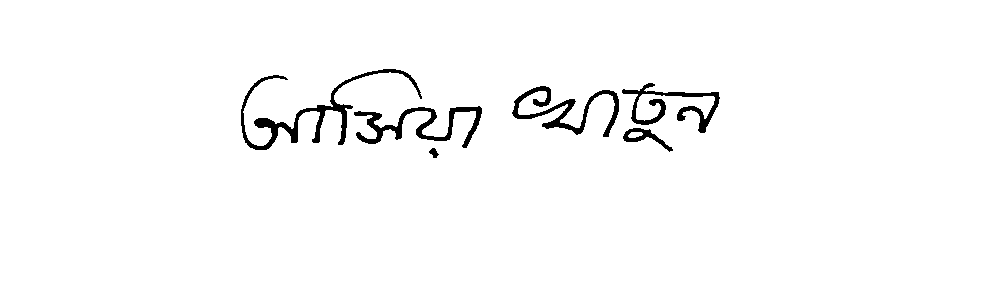 আজিয়া খাতুন